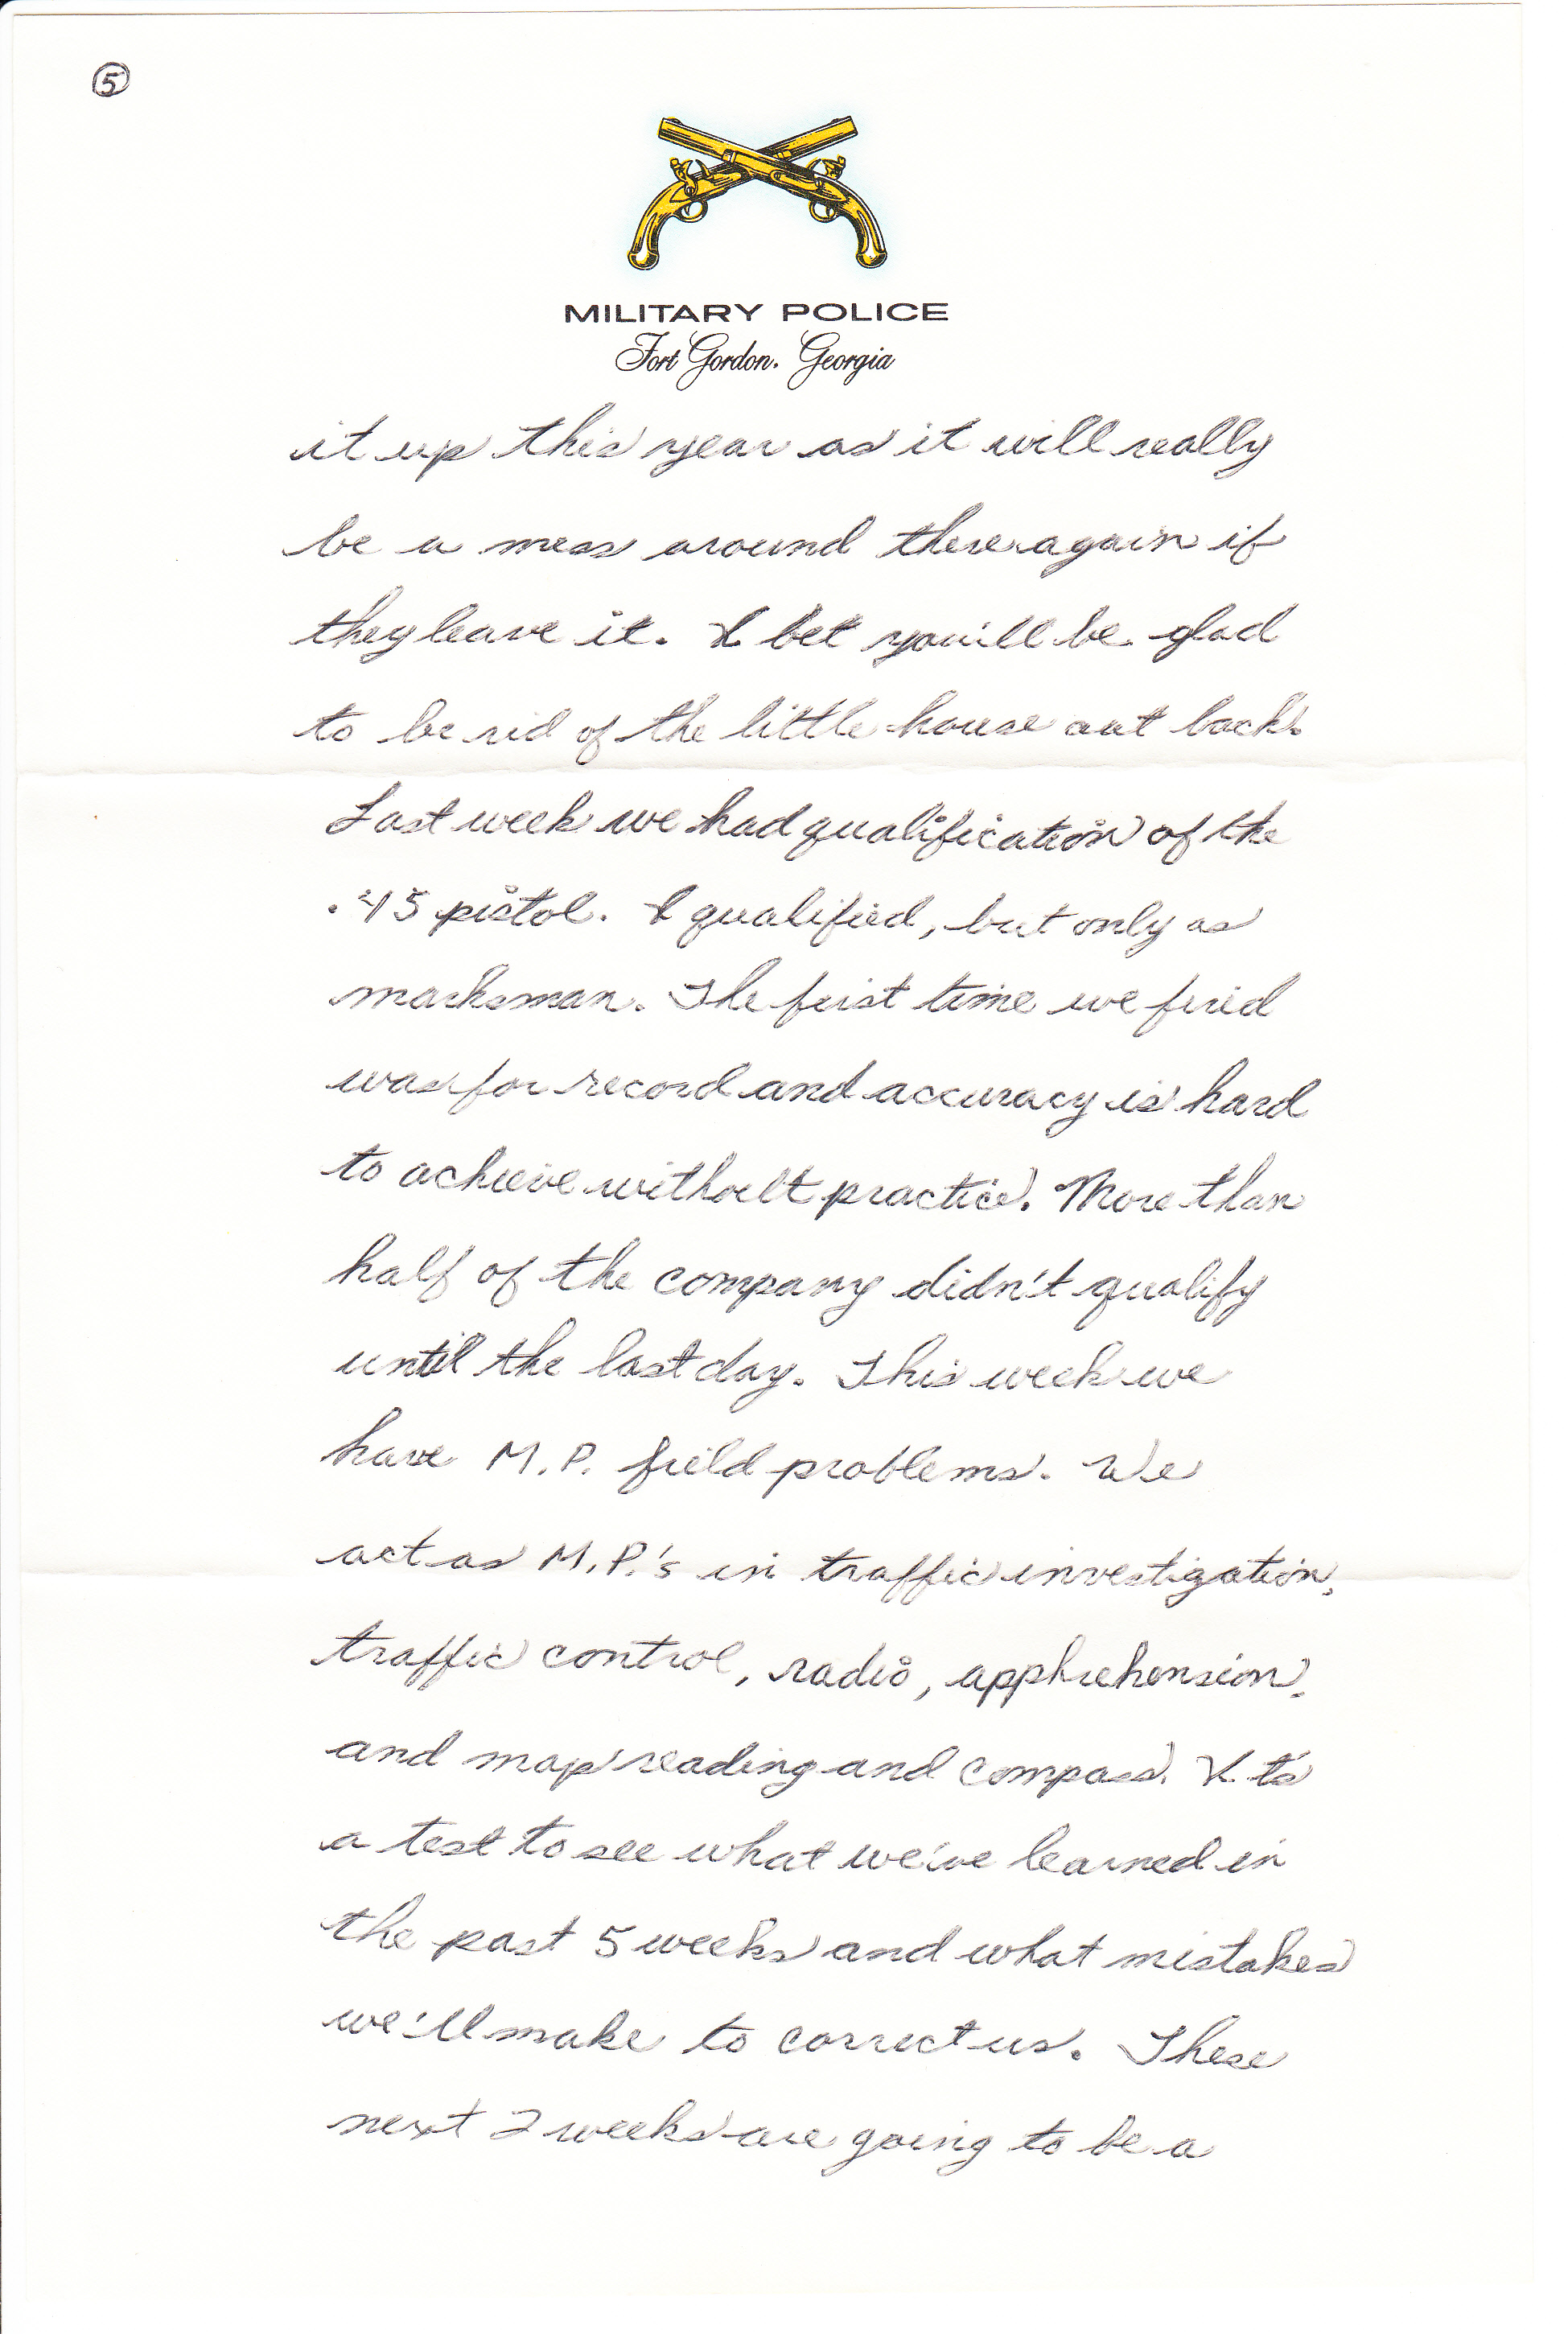 5
MILITARY POLICE
Fort Gordon, Georgia
it up this year as it will really
be a mess around there again if
they leave it. I bet you'll be glad
to be rid of the little house out back.
Last week we had qualification of the
.45 pistol. I qualified, but only as
marksman. The first time we fired
was for record and accuracy is hard
to achieve without practice. More than
half of the company didn't qualify
until the last day. This week we
have M.P. field problems. We
act as M.P.'s in traffic investigation,
traffic control, radio, apphrehension,
and map reading and compass. It's
a test to see what we've learned in
the past 5 weeks and what mistakes
we'll make to correct us. These
next 2 weeks are going to be a